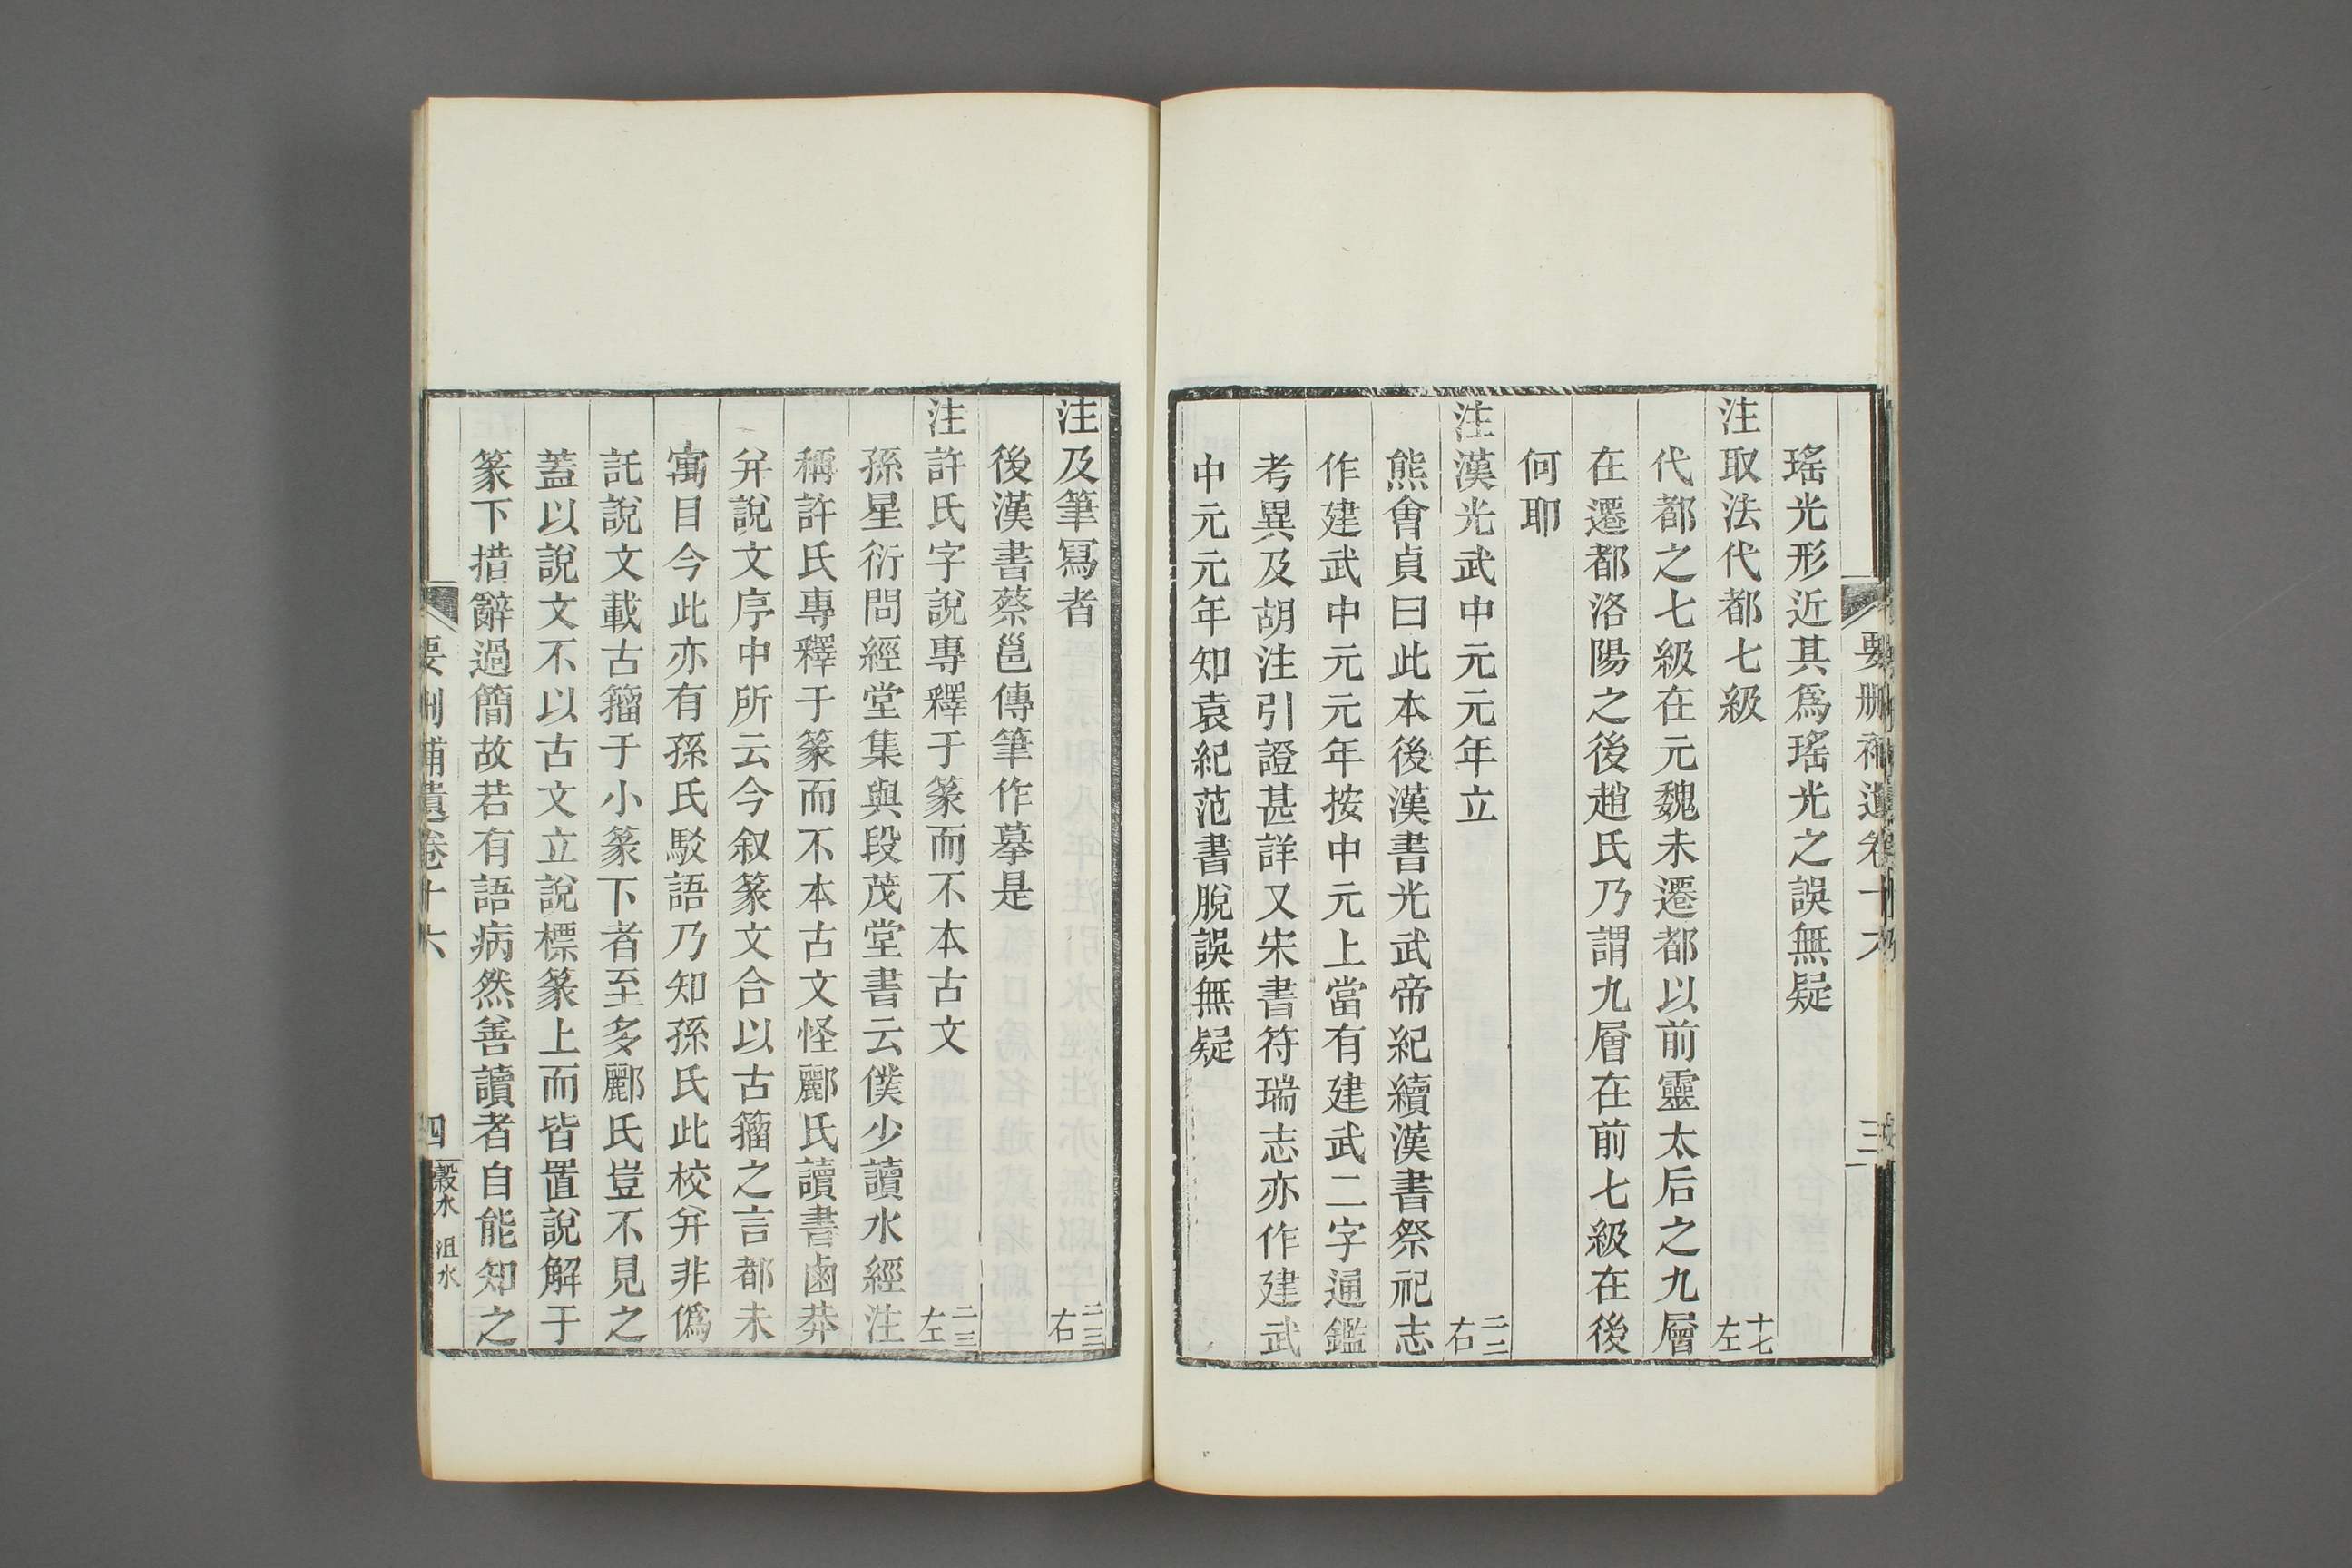 要刪補遺卷十六
三
瑤光形近其爲瑤光之誤無疑
注取法代都七級 十七左
代都之七級在元魏未遷都以前靈太后之九層
在遷都洛陽之後趙氏乃謂九層在前七級在後
何耶
注漢光武中元元年立 二二右
熊會貞曰此本後漢書光武帝紀續漢書祭祀志
作建武中元元年按中元上當有建武二字通鑑
考異及胡注引證甚詳又宋書符瑞志亦作建武
中元元年知袁紀范書脫誤無疑
注及筆寫者 二三右
後漢書蔡邕傳筆作摹是
注許氏字說專釋于篆而不本古文 二三左
孫星衍問經堂集與段茂堂書云僕少讀水經注
稱許氏專釋于篆而不本古文怪酈氏讀書鹵莽
并說文序中所云今叙篆文合以古籀之言都未
寓目今此亦有孫氏駁語乃知孫氏此校并非僞
託說文載古籀于小篆下者至多酈氏豈不見之
蓋以說文不以古文立說標篆上而皆置說解于
篆下措辭過簡故若有語病然善讀者自能知之
要刪補遺卷十六
四
穀水 沮水